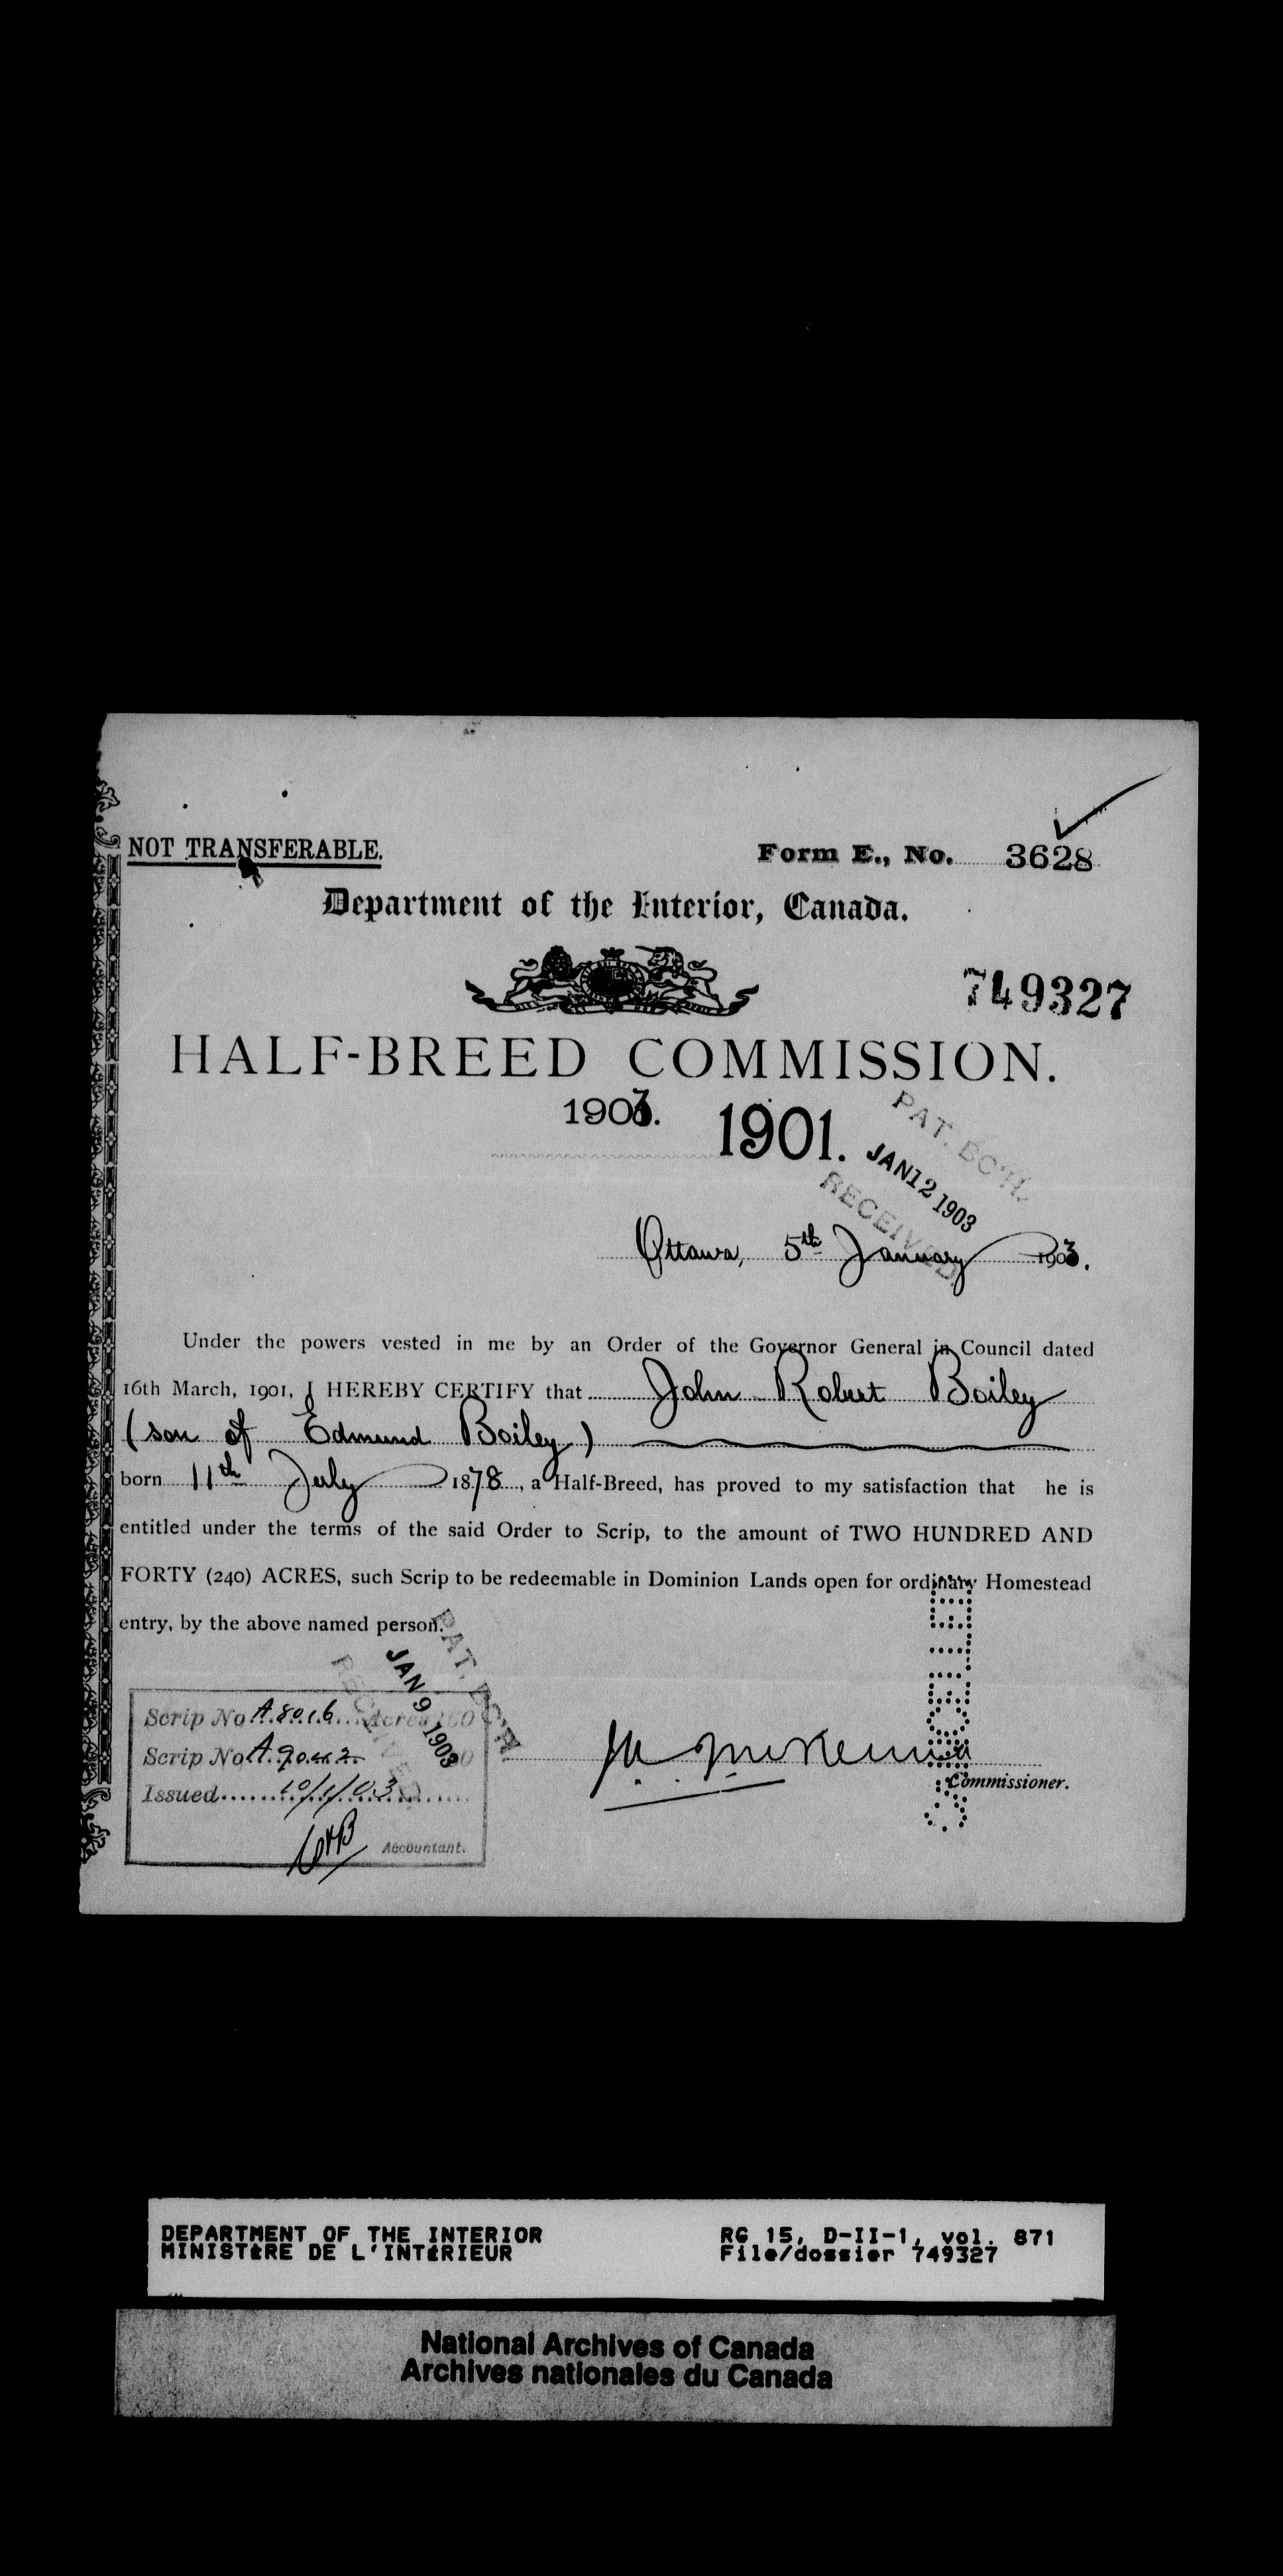 NOT TRANSFERABLE.
Form E., No. 3628
Department of the Interior, Canada.
749327
HALF-BREED COMMISSION.
1903. 1901.
PAT. BCH.
JAN 12 1903
RECEIVED
Ottawa, 5th January 1903.
Under the powers vested in me by an Order of the Governor General in Council dated
16th March, 1901, I HEREBY CERTIFY that John Robert Boiley
(son of Edmund Boiley)
born 11th July 1878, a Half-Breed, has proved to my satisfaction that he is
entitled under the terms of the said Order to Scrip, to the amount of TWO HUNDRED AND
FORTY (240) ACRES, such Scrip to be redeemable in Dominion Lands open for ordinary Homestead
entry, by the above named person.
PAT. BCH.
JAN 9 1903
RECEIVED
Scrip No. A.8016 Acres 160
Scrip No. A
Issued 10/1/03
Accountant.
Commissioner.
DEPARTMENT OF THE INTERIOR
MINISTÈRE DE L'INTÉRIEUR
RG 15, D-II-1, vol. 871
File/dossier 749327
National Archives of Canada
Archives nationales du Canada